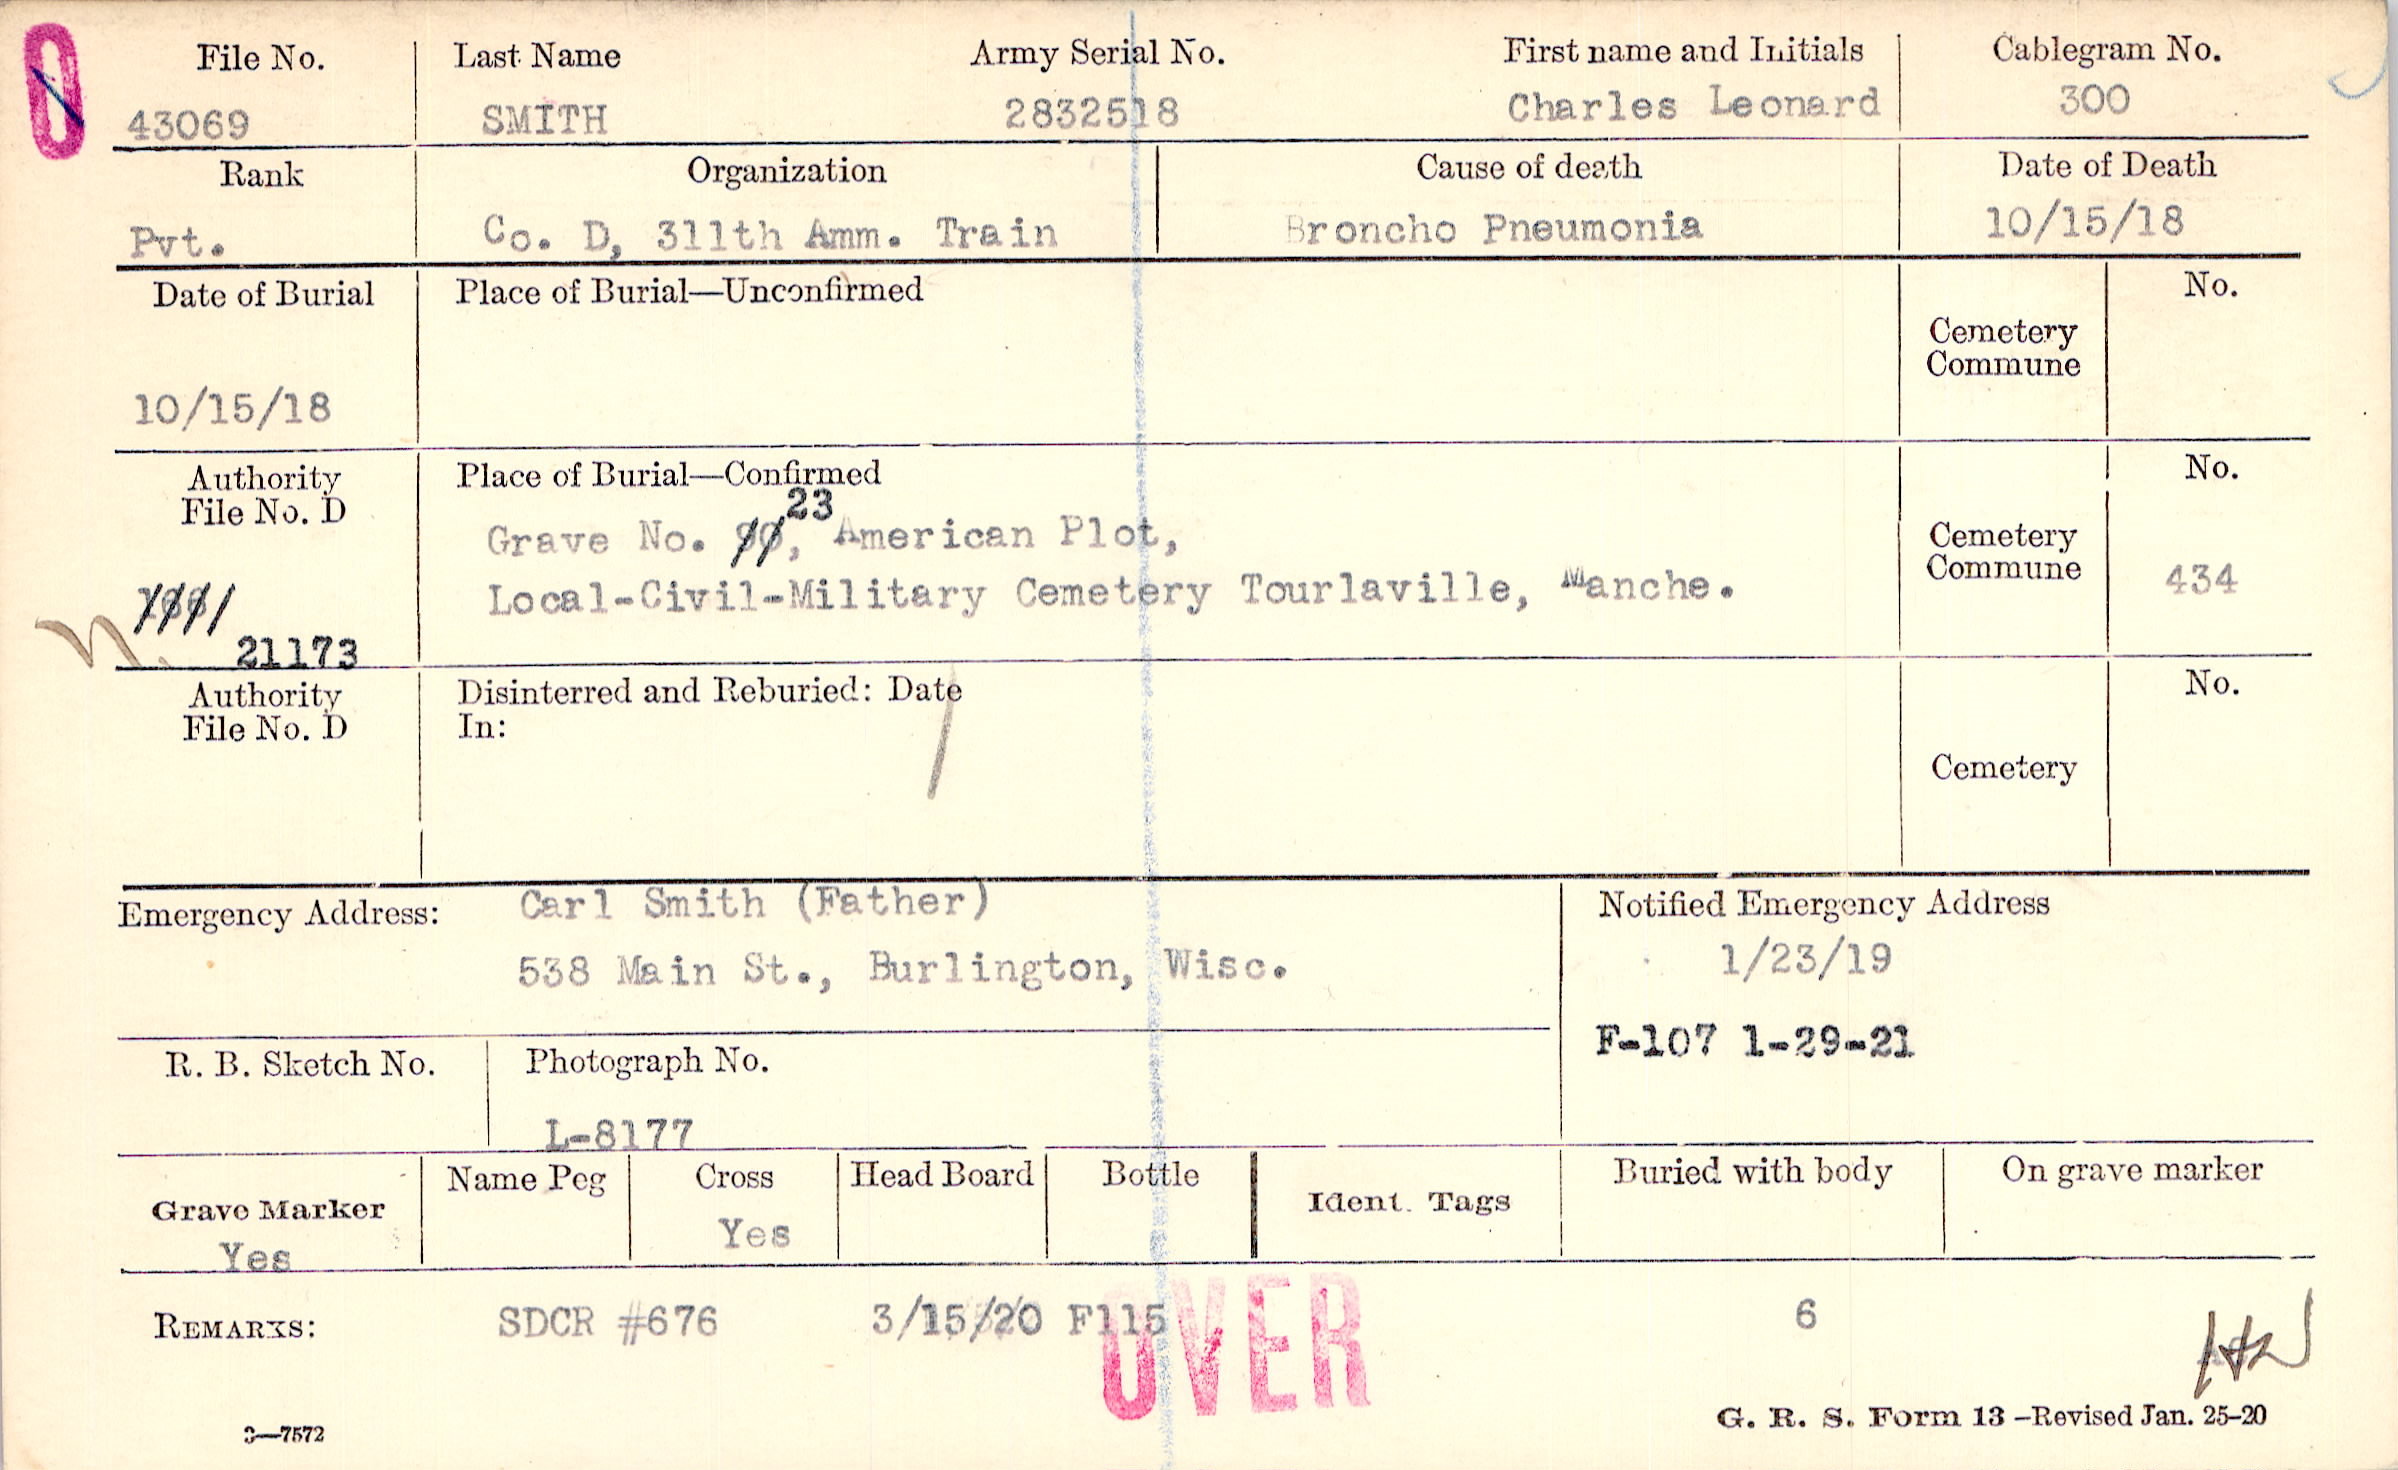 0
File No. Last Name Army Serial No. First name and Initials Cablegram No.
43069 SMITH 2832518 Charles Leonard 300
Rank Organization Cause of death Date of Death
Pvt. Co. D, 311th Amm. Train Broncho Pneumonia 10/15/18
Date of Burial Place of Burial—Unconfirmed No.
Cemetery
Commune
10/15/18
Authority Place of Burial—Confirmed No.
File No. D
23
Grave No. , American Plot,
Local-Civil-Military Cemetery Tourlaville, Manche.
Cemetery
Commune 434
21173
Authority Disinterred and Reburied: Date No.
File No. D In:
Cemetery
Emergency Address: Carl Smith (Father)
538 Main St., Burlington, Wisc.
Notified Emergency Address
1/23/19
F-107 1-29-21
R. B. Sketch No. Photograph No.
L-8177
Grave Marker Name Peg Cross Head Board Bottle Ident. Tags Buried with body On grave marker
Yes Yes
REMARKS: SDCR #676 3/15/20 F115 6
OVER
3—7572 G. R. S. Form 13 —Revised Jan. 25-20